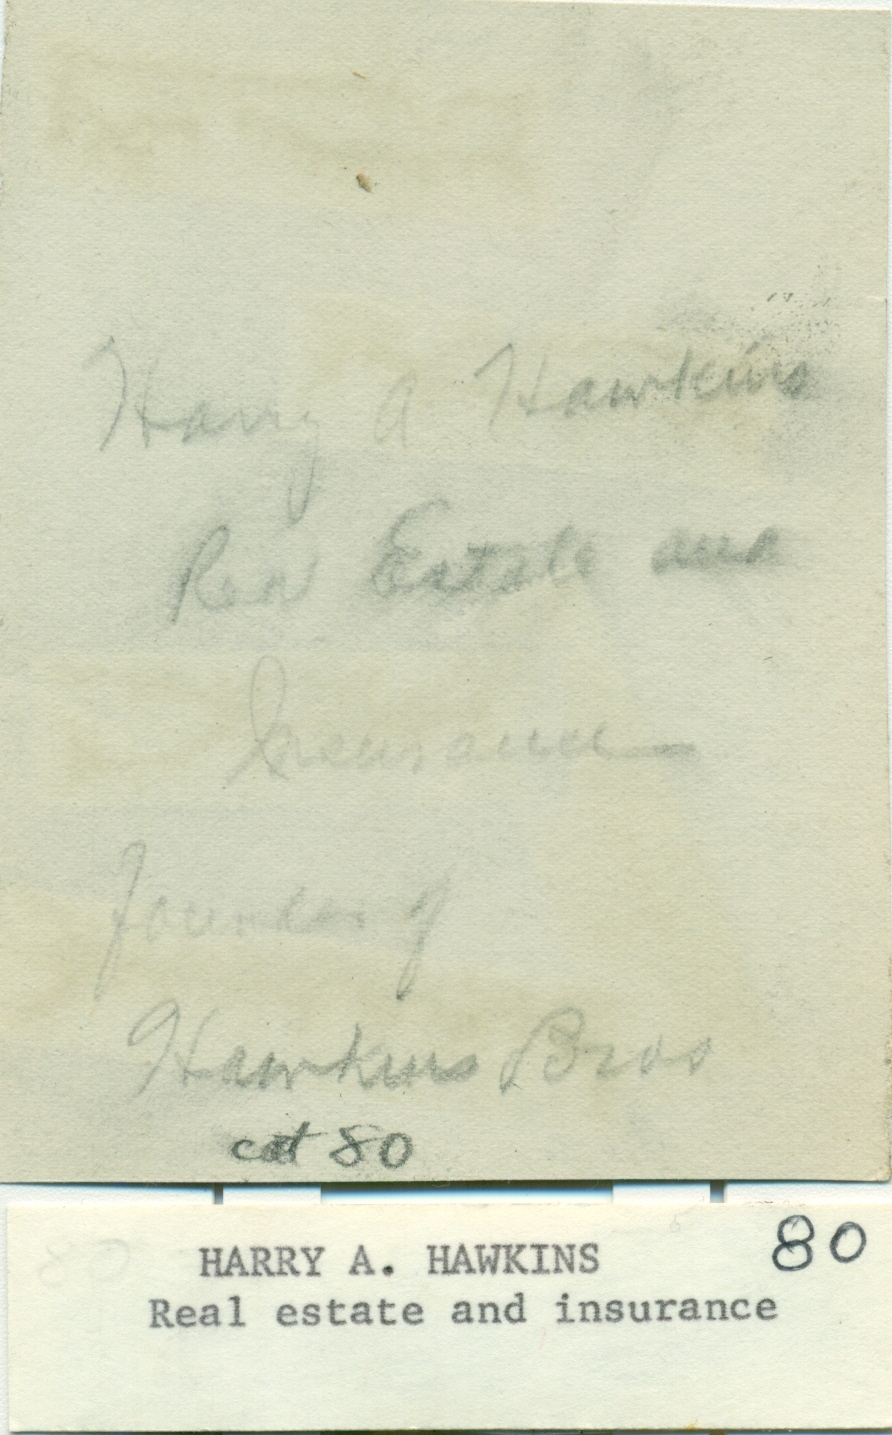 Harry A Hawkins
Real Estate and
Insurance
Founder of
Hawkins Bros
cat 80
80
HARRY A. HAWKINS
Real estate and insurance